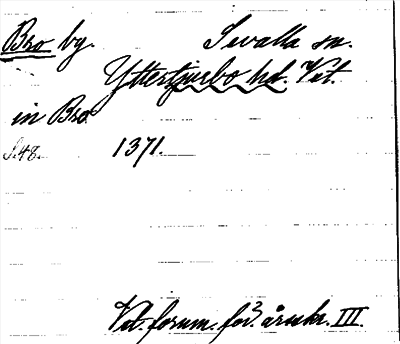 Bro by. Sevalla sn.
Yttertjurbo hd. Vst.
in Bro.
S.48. 1371.
Vst. fornm. för. årsskr. III.